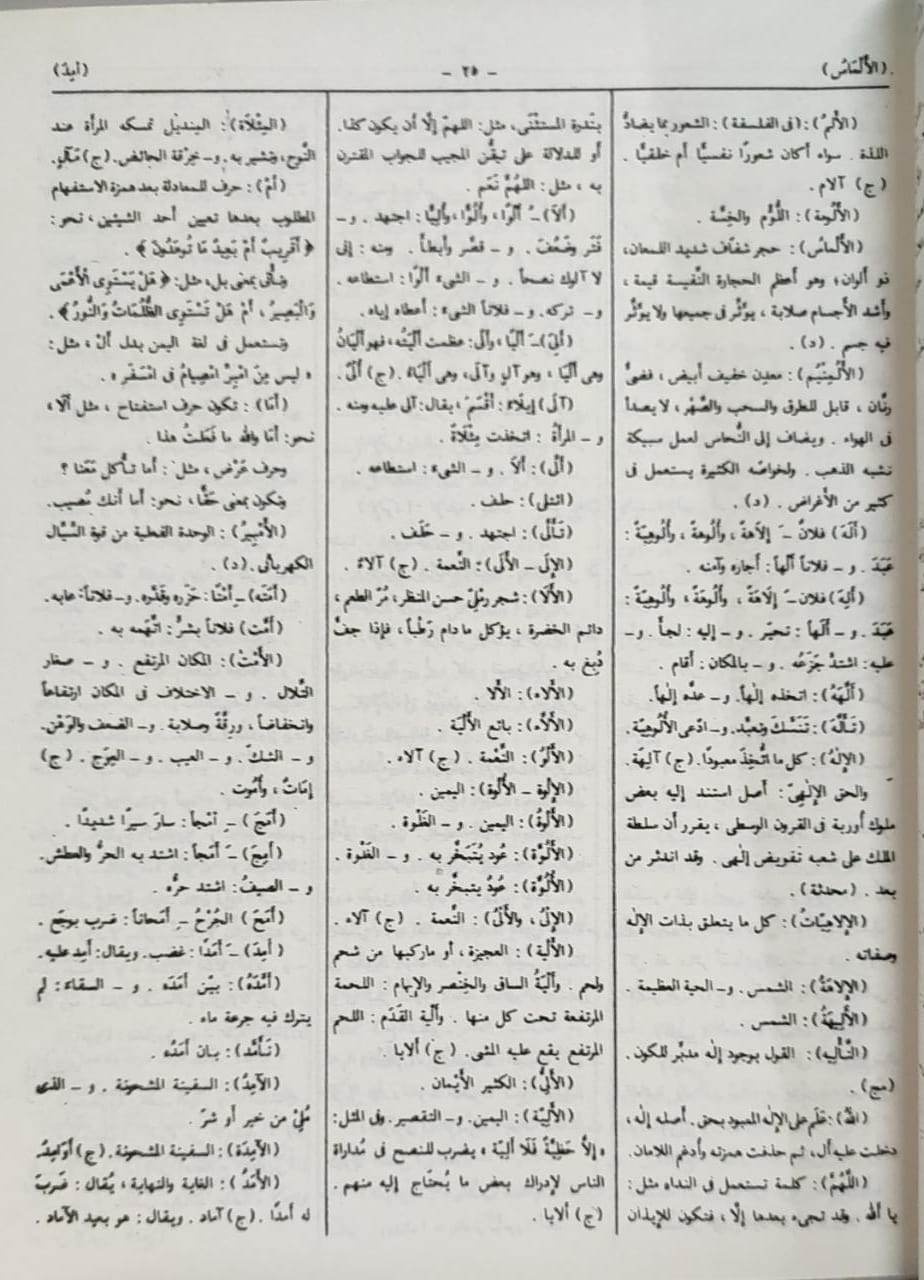 (الأَلْمَاسُ)
- ٢٥ -
(أَمِدَ)
(الأَلَمُ): (فى الفلسفة): الشعور بما يضادُّ
اللذة. سواء أكان شعورًا نفسيًّا أم خلقيًّا.
(ج) آلام.
(الأَلُومة): اللُّؤم والخِسَّة.
(الأَلْماسُ): حجر شفَّاف شديد اللمعان،
ذو ألوان؛ وهو أعظم الحجارة النَّفيسة قيمة،
وأشد الأجسام صلابة، يؤثِّر فى جميعها ولا يؤثِّر
فيه جسم. (د).
(الأَلُمِنْيُم): معدِن خفيف أبيض، فضىُّ
رنَّان، قابل للطَّرق والسحب والصَّهْر، لا يصدأ
فى الهواء. ويضاف إلى النُّحاس لعمل سبيكة
تشبه الذهب. ولخواصّه الكثيرة يستعمل فى
كثير من الأغراض. (د).
(أَلَهَ) فلانٌ ـَ إِلاهَةً، وأُلُوهةً، وأُلُوهِيَّةً:
عَبَدَ. و ـ فلاناً أَلْهاً: أجاره وآمنه.
(أَلِهَ) فلان ـَ إِلَاهَةً، وأُلُوهَةً، وأُلُوهِيَّةً:
عَبَدَ. و ـ أَلَهاً: تحيّر. و ـ إليه: لجأ. و ـ
عليه: اشتدَّ جَزَعُه. و ـ بالمكان: أقام.
(أَلَّهَهُ): اتخذه إلٰهاً. و ـ عدَّه إلٰهاً.
(تَأَلَّهَ): تَنَسَّكَ وتعبَّد. و ـ ادّعى الأُلُوهِيَّة.
(الإِلٰهُ): كل ما اتُّخِذَ معبودًا. (ج) آلِهَة.
والحق الإلٰهىّ: أصل استند إليه بعض
ملوك أوربة فى القرون الوسطى، يقرر أن سلطة
الملك على شعبه تفويض إلٰهى. وقد اندثر من
بعد. (محدثة).
(الإلاهيّاتُ): كل ما يتعلق بذات الإله
وصفاته.
(الإِلاهَةُ): الشمس. و ـ الحية العظيمة.
(الأَلِيهَةُ): الشمس.
(التَّأْليه): القول بوجود إله مدبِّر للكون.
(مج).
(اللهُ): عَلَم على الإله المعبود بحق. أصله إله،
دخلت عليه أل، ثم حذفت همزته وأدغم اللامان.
(اللّهُمّ): كلمة تستعمل فى النداء مثل:
يا الله. وقد تجىء بعدها إلّا، فتكون للإيذان
بنُدرة المستثنَى، مثل: اللهمّ إلّا أن يكون كذا.
أو للدلالة على تيقُّن المجيب للجواب المقترن
به، مثل: اللّهُمَّ نَعَم.
(أَلاَ) ـُ أَلْوًا، وأُلُوًّا، وأُلِيًّا: اجتهد. و ـ
فَتَر وضَعُفَ. و ـ قصَّر وأبطأ. ومنه: إنى
لا آلوك نصحاً. و ـ الشىءَ أَلْوًا: استطاعه.
و ـ تركه. و ـ فلاناً الشىءَ: أعطاه إياه.
(أَلِىَ) ـَ أَلْيًا، وأَلًى: عظمت أَلْيَتُه، فهو أَلْيَانُ
وهى أَلْيَا، وهو آلٍ وآلَى، وهى أَلْيَاءُ. (ج) أُلْىٌ.
(آلَى) إيلاءً: أقسَم، يقال: آلى عليه ومنه.
و ـ المرأة: اتخذت مِئْلَاةً.
(أَلَّى): أَلاَ. و ـ الشىءَ: استطاعه.
(ائتلى): حلف.
(تَأَلَّى): اجتهد. و ـ حَلَف.
(الإِلَى ـ الأَلَى): النِّعمة. (ج) آلاءٌ.
(الأَلَا): شجر رملىّ حسن المنظر، مُرّ الطعم،
دائم الخضرة، يؤكل ما دام رَطْباً، فإذا جفَّ
دُبِغ به.
(الأَلاء): الأَلا.
(الأَلَّاءُ): بائع الأَلْيَة.
(الأَلْوُ): النِّعْمة. (ج) آلاء.
(الإلوة ـ الأَلْوة): اليمين.
(الأُلْوَةُ): اليمين. و ـ الغَلْوَة.
(الأَلُوَّةُ): عُود يُتَبخَّر به. و ـ الغَلْوة.
(الأُلُوَّةُ): عُودٌ يتبخَّر به.
(الإِلْىُ، والأَلْىُ): النِّعمة. (ج) آلاء.
(الأَلْية): العجيزة، أو ما ركبها من شحم
ولحم. وأَلْيَةُ الساق والخِنْصر والإبهام: اللحمة
المرتفعة تحت كل منها. وأَلْية القَدَم: اللحم
المرتفع يقع عليه المشى. (ج) ألايا.
(الأَلِىُّ): الكثير الأَيْمان.
(الأَلِيَّة): اليمين. و ـ التقصير. وفى المثل:
«إلَّا حَظِيَّةً فَلَا أَلِيَّة» يضرب للنصح فى مُداراة
الناس لإدراك بعض ما يُحتاج إليه منهم.
(ج) ألايا.
(المِئْلَاة): المِنديل تمسكه المرأة عند
النَّوح، وتشير به. و ـ خِرْقة الحائض. (ج) مَآلٍ.
(أَمْ): حرف للمعادلة بعد همزة الاستفهام
المطلوب بعدها تعيين أحد الشيئين، نحو:
﴿أَقَرِيبٌ أَمْ بَعِيدٌ مَا تُوعَدُونَ﴾.
وتأتى بمعنى بل، مثل: ﴿هَلْ يَسْتَوِى الأَعْمَى
وَالْبَصِيرُ، أَمْ هَلْ تَسْتَوِى الظُّلُمَاتُ وَالنُّورُ﴾.
وتستعمل فى لغة اليمن بدل أَلْ، مثل:
«ليس مِنَ امْبِرِّ امْصِيامُ فى امْسَفَر».
(أَمَا): تكون حرف استفتاح، مثل أَلَا،
نحو: أَمَا والله ما فَعَلْتُ هذا.
وحرف عَرْض، مثل: أَما تأكل مَعَنا؟
وتكون بمعنى حَقًّا، نحو: أما أنك مُصيب.
(الأَمْبِيرُ): الوحدة الفعلية من قوة السَّيَّال
الكهربائى. (د).
(أَمَتَه) ـِ أَمْتًا: حَزَره وقَدَّره. و ـ فلاناً: عابه.
(أَمَّت) فلاناً بشرٍّ: اتَّهمه به.
(الأَمْتُ): المكان المرتفع. و ـ صغار
التِّلال. و ـ الاختلاف فى المكان ارتفاعاً
وانخفاضاً، ورِقَّةً وصلابة. و ـ الضعف والوَهْن.
و ـ الشكّ. و ـ العيب. و ـ العِوَج. (ج)
إِمَاتٌ، وأُمُوت.
(أَمَجَ) ـِ أَمْجاً: سار سيرًا شديدًا.
(أَمِجَ) ـَ أَمَجاً: اشتد به الحرُّ والعطش.
و ـ الصيفُ: اشتد حرُّه.
(أَمَحَ) الجُرْحُ ـِ أَمَحاناً: ضَرب بوجع.
(أَمِدَ) ـَ أَمَدًا: غضب. ويقال: أَمِد عليه.
(أَمَّدَهُ): بيَّن أَمَدَه. و ـ السقاءَ: لم
يترك فيه جرعة ماء.
(تَأَمَّد): بان أَمَدُه.
(الآمِدُ): السفينة المشحونة. و ـ الذى
مُلِئَ من خير أو شرّ.
(الآمِدَةُ): السفينة المشحونة. (ج) أَوَامِدُ.
(الأَمَدُ): الغاية والنهاية، يُقال: ضَرَبَ
له أمدًا. (ج) آماد. ويقال: هو بعيد الآماد.